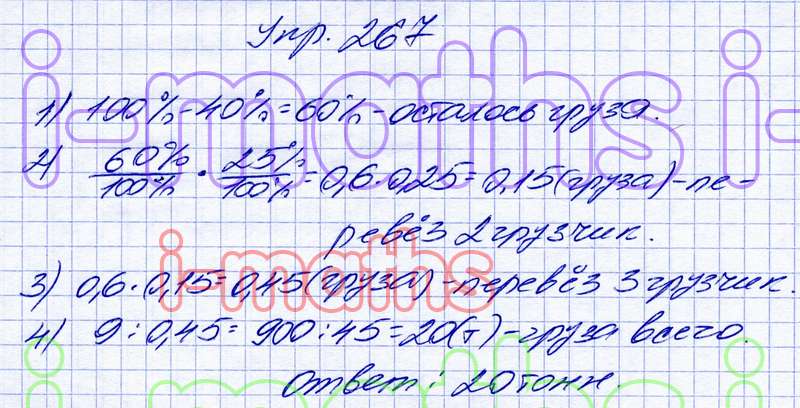 Упр. 267
1) 100% - 40% = 60% - осталось груза.
2) 60%/100% · 25%/100% = 0,6 · 0,25 = 0,15 (груза) - пе-
ревёз 2 грузчик.
3) 0,6 · 0,15 = 0,45 (груза) - перевёз 3 грузчик.
4) 9 : 0,45 = 900 : 45 = 20 (т) - груза всего.
Ответ: 20 тонн.
i-maths
i-maths
i-maths